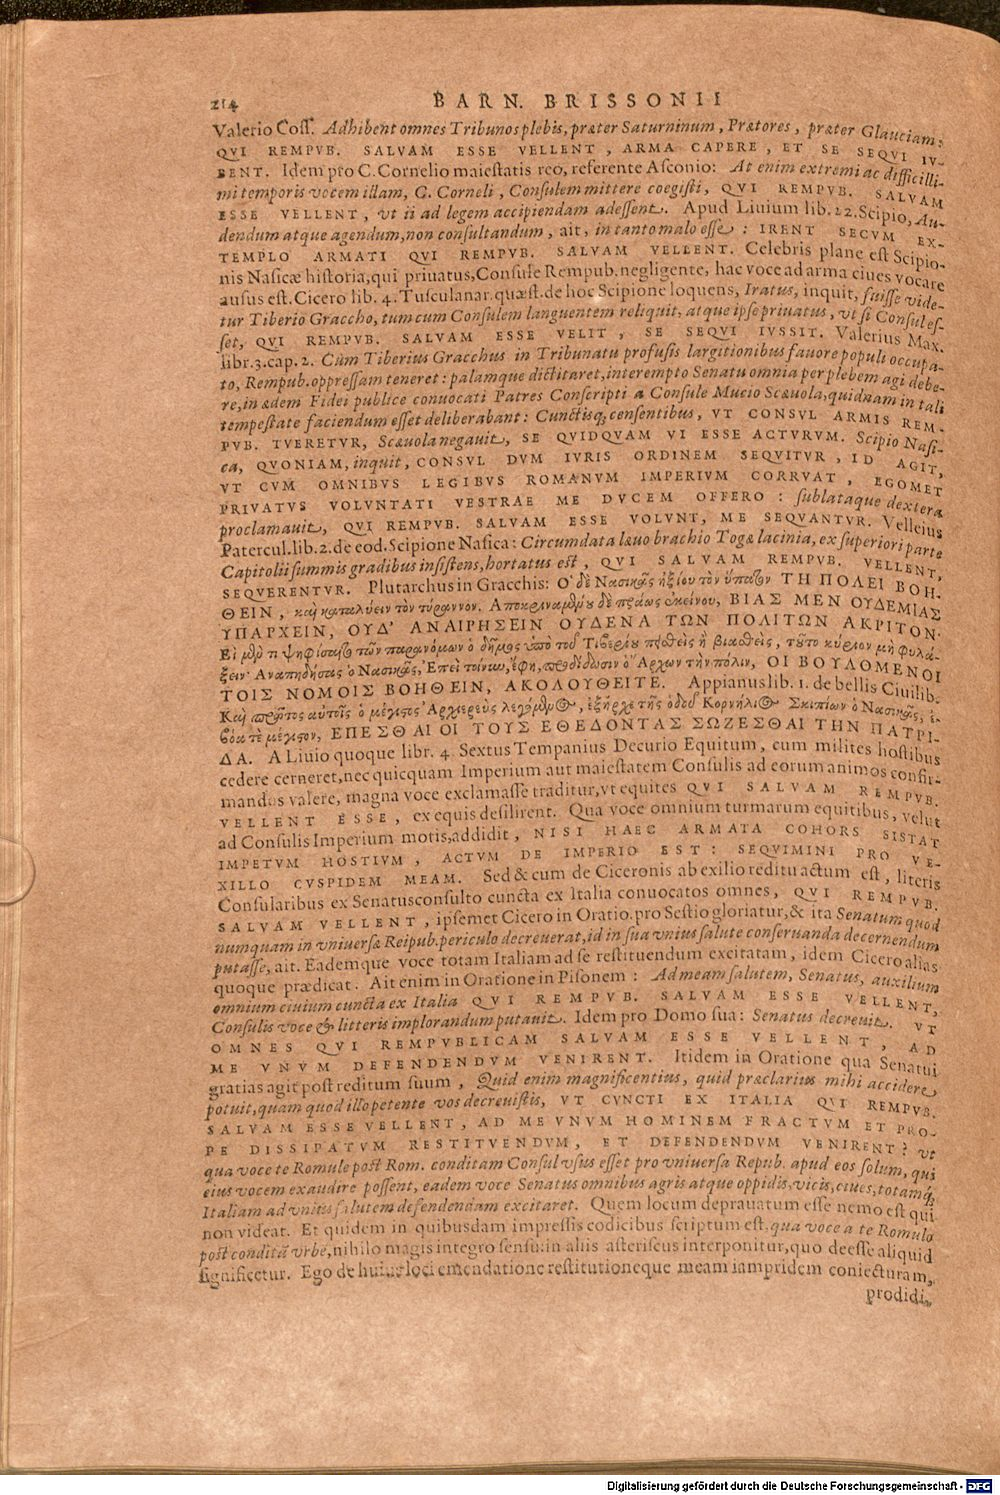 214 BARN. BRISSONII
Valerio Coſſ. Adhibent omnes Tribunos plebis, præter Saturninum, Prætores, præter Glauciam:
QVI REMPVB. SALVAM ESSE VELLENT, ARMA CAPERE, ET SE SEQVI IV-
BENT. Idem pro C. Cornelio maieſtatis reo, referente Aſconio: At enim extremi ac difficilli-
mi temporis vocem illam, C. Corneli, Conſulem mittere coegiſti, QVI REMPVB. SALVAM
ESSE VELLENT, vt ii ad legem accipiendam adeſſent. Apud Liuium lib. 22. Scipio, Au-
dendum atque agendum, non conſultandum, ait, in tanto malo eſſe: IRENT SECVM EX-
TEMPLO ARMATI QVI REMPVB. SALVAM VELLENT. Celebris plane eſt Scipio-
nis Naſicæ hiſtoria, qui priuatus, Conſule Rempub. negligente, hac voce ad arma ciues vocare
auſus eſt. Cicero lib. 4. Tuſculanar. quæſt. de hoc Scipione loquens, Iratus, inquit, fuiſſe vide-
tur Tiberio Graccho, tum cum Conſulem languentem reliquit, atque ipſe priuatus, vt ſi Conſul eſ-
ſet, QVI REMPVB. SALVAM ESSE VELIT, SE SEQVI IVSSIT. Valerius Max.
libr. 3. cap. 2. Cùm Tiberius Gracchus in Tribunatu profuſis largitionibus fauore populi occupa-
to, Rempub. oppreſſam teneret: palamque dictitaret, interempto Senatu omnia per plebem agi debe-
re, in ædem Fidei publice conuocati Patres Conſcripti a Conſule Mucio Scæuola, quidnam in tali
tempeſtate faciendum eſſet deliberabant: Cunctisq; cenſentibus, VT CONSVL ARMIS REM-
PVB. TVERETVR, Scæuola negauit, SE QVIDQVAM VI ESSE ACTVRVM. Scipio Naſi-
ca, QVONIAM, inquit, CONSVL DVM IVRIS ORDINEM SEQVITVR, ID AGIT,
VT CVM OMNIBVS LEGIBVS ROMANVM IMPERIVM CORRVAT, EGOMET
PRIVATVS VOLVNTATI VESTRAE ME DVCEM OFFERO: ſublataque dextera
proclamauit, QVI REMPVB. SALVAM ESSE VOLVNT, ME SEQVANTVR. Velleius
Patercul. lib. 2. de eod. Scipione Naſica: Circumdata læuo brachio Togæ lacinia, ex ſuperiori parte
Capitolii ſummis gradibus inſiſtens, hortatus eſt, QVI SALVAM REMPVB. VELLENT,
SEQVERENTVR. Plutarchus in Gracchis: Ὁ δὲ Νασικᾶς ἠξίου τὸν ὕπατον ΤΗ ΠΟΛΕΙ ΒΟΗ-
ΘΕΙΝ, καὶ καταλύειν τὸν τύραννον. Αποκριναμένου δὲ πράως ἐκείνου, ΒΙΑΣ ΜΕΝ ΟΥΔΕΜΙΑΣ
ΥΠΑΡΧΕΙΝ, ΟΥΔ' ΑΝΑΙΡΗΣΕΙΝ ΟΥΔΕΝΑ ΤΩΝ ΠΟΛΙΤΩΝ ΑΚΡΙΤΟΝ·
Εἰ μέν τι ψηφίσαιτο τῶν παρανόμων ὁ δῆμος ὑπὸ τοῦ Τιβερίου πεισθεὶς ἢ βιασθεὶς, τοῦτο κύριον μὴ φυλά-
ξειν· Αναπηδήσας ὁ Νασικᾶς, Ἐπεὶ τοίνυν, ἔφη, προδίδωσιν ὁ Ἄρχων τὴν πόλιν, ΟΙ ΒΟΥΛΟΜΕΝΟΙ
ΤΟΙΣ ΝΟΜΟΙΣ ΒΟΗΘΕΙΝ, ΑΚΟΛΟΥΘΕΙΤΕ. Appianus lib. 1. de bellis Ciuilib.
Καὶ πρῶτος αὐτοῖς ὁ μέγιστος Ἀρχιερεὺς λεγόμενος, ἐξῆρχε τῆς ὁδοῦ Κορνήλιος Σκιπίων ὁ Νασικᾶς, ἐ-
βόα τὲ μέγιστον, ΕΠΕΣΘΑΙ ΟΙ ΤΟΥΣ ΕΘΕΔΟΝΤΑΣ ΣΩΖΕΣΘΑΙ ΤΗΝ ΠΑΤΡΙ-
ΔΑ. A Liuio quoque libr. 4. Sextus Tempanius Decurio Equitum, cum milites hoſtibus
cedere cerneret, nec quicquam Imperium aut maieſtatem Conſulis ad eorum animos confir-
mandos valere, magna voce exclamaſſe traditur, vt equites QVI SALVAM REMPVB.
VELLENT ESSE, ex equis deſilirent. Qua voce omnium turmarum equitibus, velut
ad Conſulis Imperium motis, addidit, NISI HAEC ARMATA COHORS SISTAT
IMPETVM HOSTIVM, ACTVM DE IMPERIO EST: SEQVIMINI PRO VE-
XILLO CVSPIDEM MEAM. Sed & cum de Ciceronis ab exilio reditu actum eſt, literis
Conſularibus ex Senatusconſulto cuncta ex Italia conuocatos omnes, QVI REMPVB.
SALVAM VELLENT, ipſemet Cicero in Oratio. pro Seſtio gloriatur, & ita Senatum quod
numquam in vniuerſa Reipub. periculo decreuerat, id in ſua vnius ſalute conſeruanda decernendum
putaſſe, ait. Eademque voce totam Italiam ad ſe reſtituendum excitatam, idem Cicero alias
quoque prædicat. Ait enim in Oratione in Piſonem: Ad meam ſalutem, Senatus, auxilium
omnium ciuium cuncta ex Italia QVI REMPVB. SALVAM ESSE VELLENT,
Conſulis voce & litteris implorandum putauit. Idem pro Domo ſua: Senatus decreuit. VT
OMNES QVI REMPVBLICAM SALVAM ESSE VELLENT, AD
ME VNVM DEFENDENDVM VENIRENT. Itidem in Oratione qua Senatui
gratias agit poſt reditum ſuum, Quid enim magnificentius, quid præclarius mihi accidere
potuit, quam quod illo petente vos decreuiſtis, VT CVNCTI EX ITALIA QVI REMPVB.
SALVAM ESSE VELLENT, AD ME VNVM HOMINEM FRACTVM ET PRO-
PE DISSIPATVM RESTITVENDVM, ET DEFENDENDVM VENIRENT? vt
qua voce te Romule poſt Rom. conditam Conſul vſus eſſet pro vniuerſa Repub. apud eos ſolum, qui
eius vocem exaudire poſſent, eadem voce Senatus omnibus agris atque oppidis, vicis, ciues, totamq;
Italiam ad vnius ſalutem defendendam excitaret. Quem locum deprauatum eſſe nemo eſt qui
non videat. Et quidem in quibuſdam impreſſis codicibus ſcriptum eſt, qua voce a te Romulo
poſt conditā vrbē, nihilo magis integro ſenſu: in aliis aſteriſcus interponitur, quo deeſſe aliquid
ſignificetur. Ego de huius loci emendatione reſtitutioneque meam iampridem coniecturam,
prodidi,
Digitalisierung gefördert durch die Deutsche Forschungsgemeinschaft - DFG